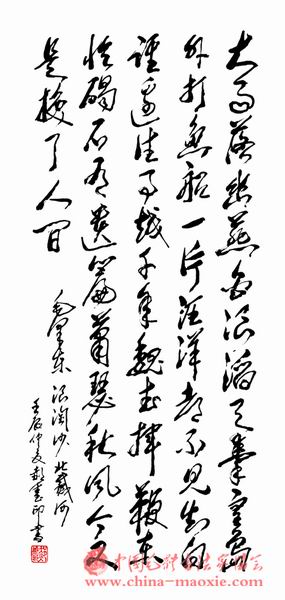 大雨落幽燕白浪滔天秦皇岛
外打鱼船一片汪洋都不见知向
谁边往事越千年魏武挥鞭东
临碣石有遗篇萧瑟秋风今又
是换了人间
毛泽东浪淘沙北戴河
壬辰仲夏
www.china-maoxie.com